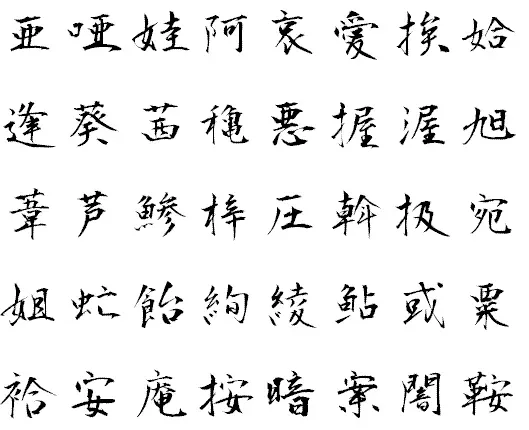 亜 唖 娃 阿 哀 愛 挨 姶
逢 葵 茜 穐 悪 握 渥 旭
葦 芦 鯵 梓 圧 斡 扱 宛
姐 虻 飴 絢 綾 鮎 或 粟
袷 安 庵 按 暗 案 闇 鞍